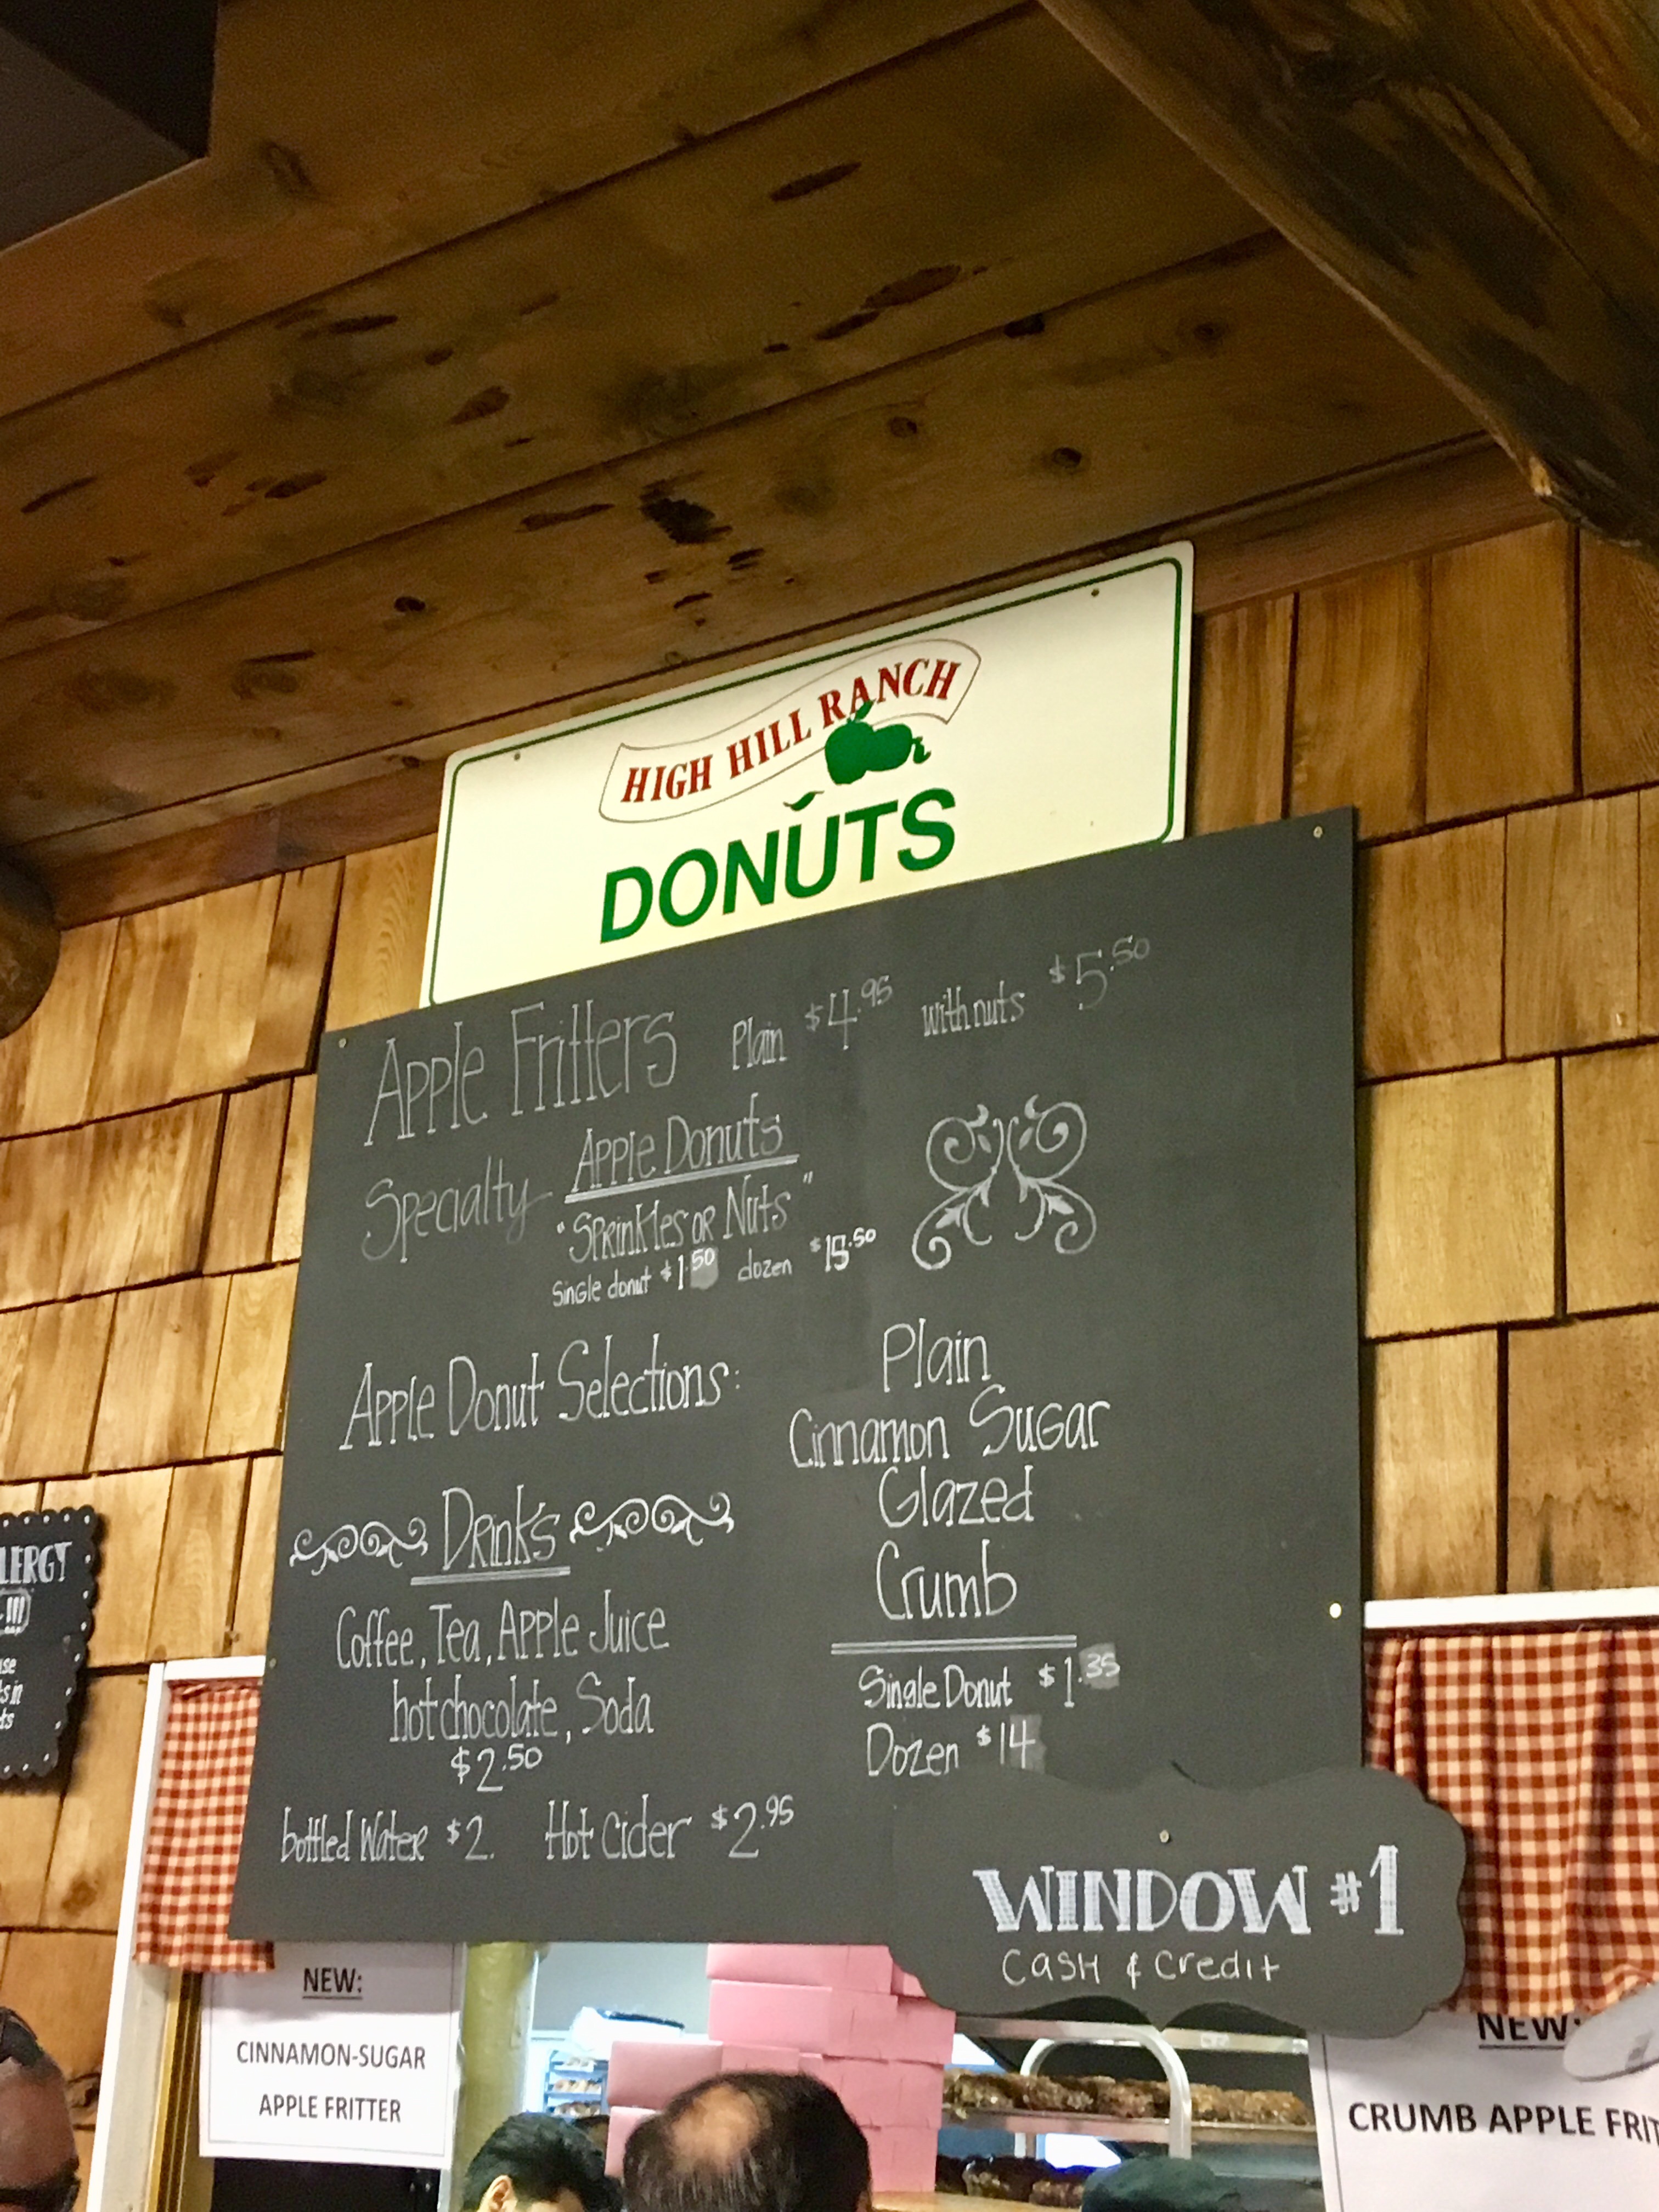 HIGH HILL RANCH
DONUTS
Apple Fritters Plain $4.95 with nuts $5.50
Specialty Apple Donuts
"Sprinkles or Nuts"
Single donut $1.50 dozen $15.50
Apple Donut Selections:
Plain
Cinnamon Sugar
Glazed
Crumb
Single Donut $1.35
Dozen $14
Drinks
Coffee, Tea, Apple Juice
hot chocolate, Soda
$2.50
bottled Water $2. Hot Cider $2.95
WINDOW #1
Cash & Credit
LERGY
!!!
se
s in
ts
NEW:
CINNAMON-SUGAR
APPLE FRITTER
NEW:
CRUMB APPLE FRIT